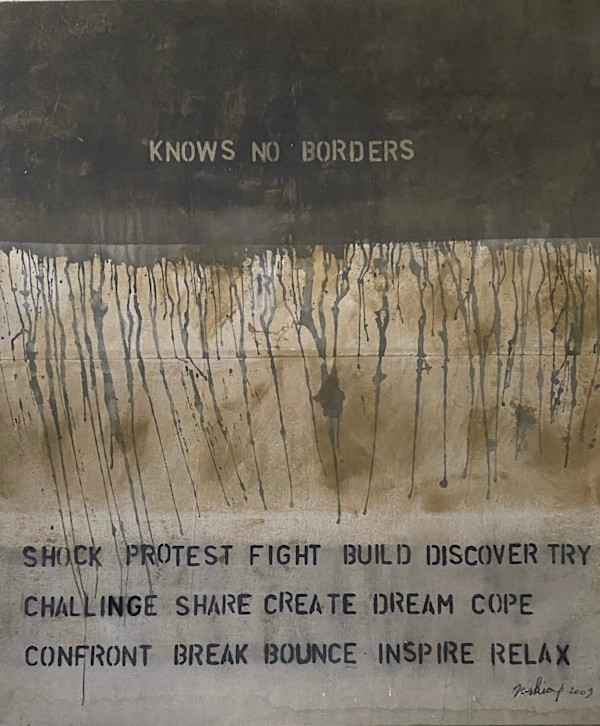 KNOWS NO BORDERS
SHOCK PROTEST FIGHT BUILD DISCOVER TRY
CHALLINGE SHARE CREATE DREAM COPE
CONFRONT BREAK BOUNCE INSPIRE RELAX
2009